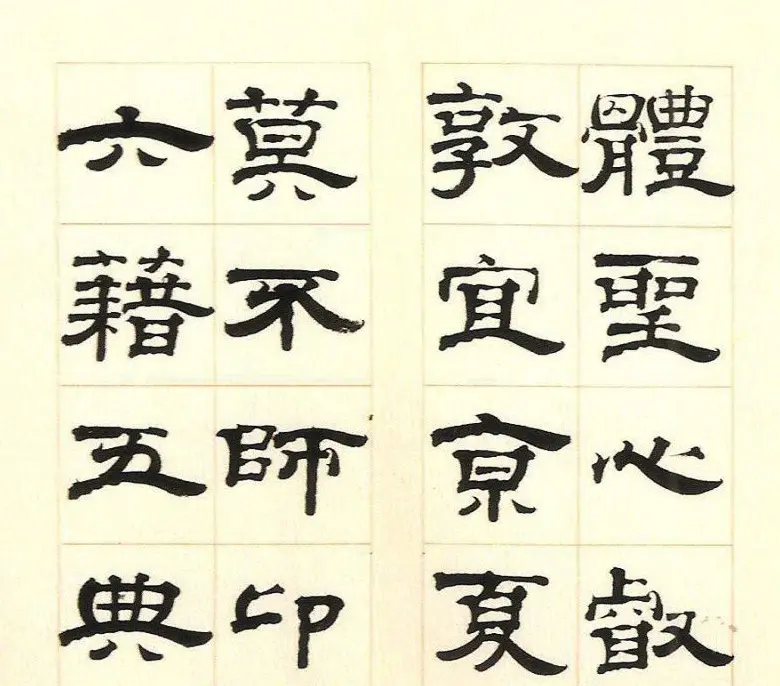 體聖心叡
敦宜京夏
莫不師卬
六藉五典